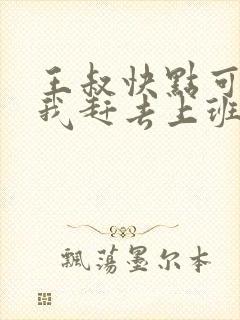 王叔快點可
我赶去上班
飄荡墨尔本